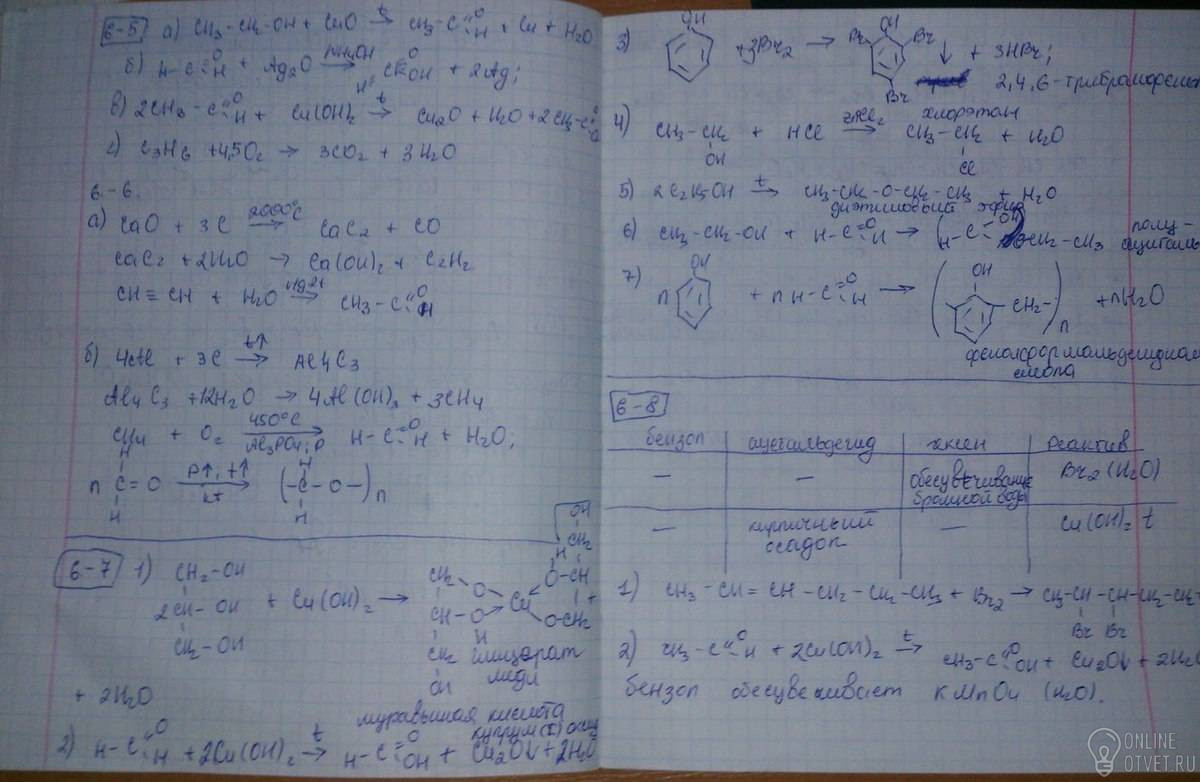 6-5 а) CH3-CH2-OH + CuO t→ CH3-C=O H + Cu + H2O
б) H-C=O H + Ag2O NH4OH→ H-C=O OH + 2Ag↓
в) 2CH3-C=O H + Cu(OH)2 t→ Cu2O + H2O + 2CH3-C=O
г) C3H6 + 4,5O2 → 3CO2 + 3H2O
6-6.
а) CaO + 3C 2000°C→ CaC2 + CO
CaC2 + 2H2O → Ca(OH)2 + C2H2
CH≡CH + H2O Hg2+→ CH3-C=O H
б) 4Al + 3C t↑→ Al4C3
Al4C3 + 12H2O → 4Al(OH)3 + 3CH4
CH4 + O2 450°C→ AlPO4, P H-C=O H + H2O;
n H C=O H P↑, t↑→ kt (-C H H -O-)n
6-7 1) CH2-OH
2CH-OH + Cu(OH)2 →
CH2-OH
CH2 O Cu O-CH
CH-O H O-CH2
CH2
OH
OH
CH2
H
глицерат
меди
+ 2H2O
муравьиная кислота
2) H-C=O H + 2Cu(OH)2 t→ H-C=O OH + Cu2O↓ + 2H2O
3) OH + 3Br2 → OH Br Br Br ↓ + 3HBr;
2,4,6-трибромфенол
хлорэтан
4) CH3-CH2 OH + HCl ZnCl2→ CH3-CH2 Cl + H2O
5) 2C2H5OH t→ CH3-CH2-O-CH2-CH3 + H2O
диэтиловый эфир
6) CH3-CH2-OH + H-C=O H → H-C OH O-CH2-CH3 полу-
ацеталь
7) n OH + n H-C=O H → ( OH CH2- )n + nH2O
фенолформальдегидная
смола
6-8
бензол ацетальдегид гексен реактив
— — обесцвечивание
бромной воды Br2(H2O)
— кирпичный
осадок — Cu(OH)2 t
1) CH3-CH=CH-CH2-CH2-CH3 + Br2 → CH3-CH-CH-CH2-CH2-
Br Br
2) CH3-C=O H + 2Cu(OH)2 t→ CH3-C=O OH + Cu2O↓ + 2H2O
бензол обесцвечивает KMnO4 (H2O).
ONLINE
OTVET.RU